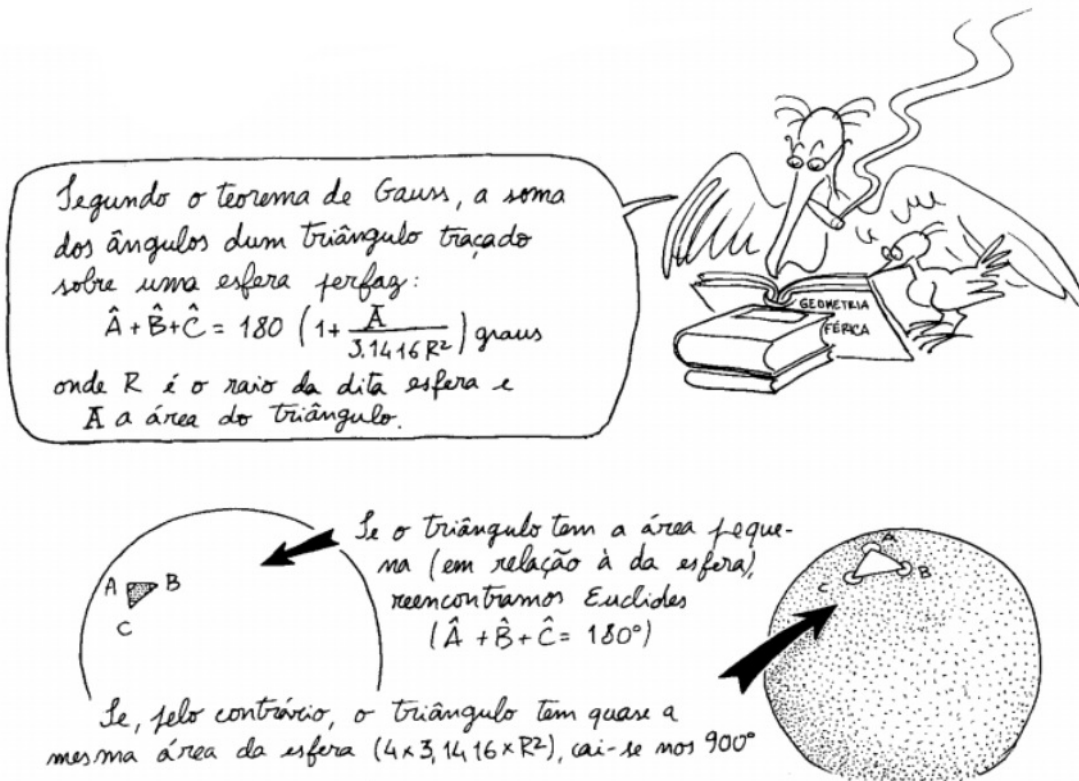 Segundo o teorema de Gauss, a soma
dos ângulos dum triângulo traçado
sobre uma esfera perfaz:
Â + B̂ + Ĉ = 180 (1 + A / 3.1416 R²) graus
onde R é o raio da dita esfera e
A a área do triângulo.
GEOMETRIA
FÉRICA
Se o triângulo tem a área peque-
na (em relação à da esfera),
reencontramos Euclides
(Â + B̂ + Ĉ = 180°)
A B
C
A
C B
Se, pelo contrário, o triângulo tem quase a
mesma área da esfera (4 × 3,1416 × R²), cai-se nos 900°